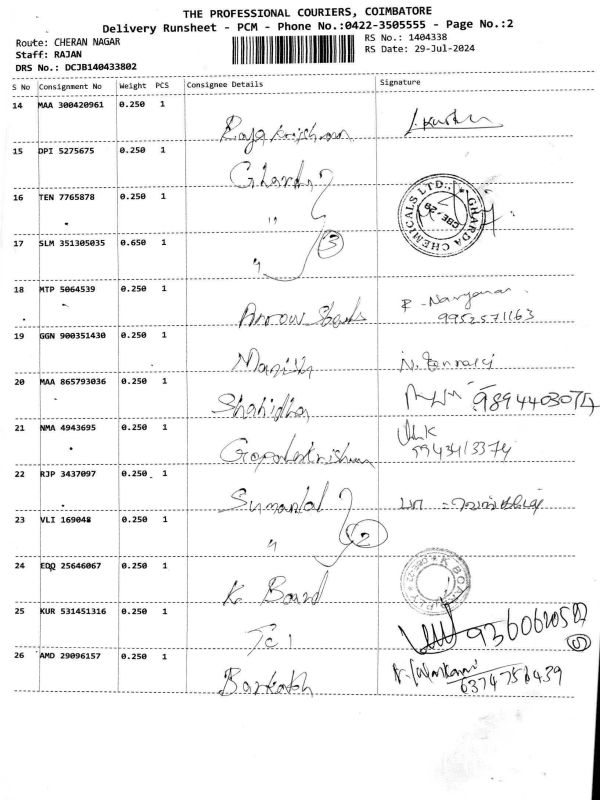 THE PROFESSIONAL COURIERS, COIMBATORE
Delivery Runsheet - PCM - Phone No.:0422-3505555 - Page No.:2
Route: CHERAN NAGAR RS No.: 1404338
Staff: RAJAN RS Date: 29-Jul-2024
DRS No.: DCJB140433802
S No Consignment No Weight PCS Consignee Details Signature
14 MAA 300420961 0.250 1
Raja krishnan
15 DPI 5275675 0.250 1
Gharda
16 TEN 7765878 0.250 1
" GHARDA CHEMICALS LTD., CBE-28
17 SLM 351305035 0.650 1
" 3
18 MTP 5064539 0.250 1
Arrow R. Narayanan
9952571163
19 GGN 900351430 0.250 1
Manish
20 MAA 865793036 0.250 1
Shahidha 9894403074
21 NMA 4943695 0.250 1
Gopalakrishnan 9943413374
22 RJP 3437097 0.250 1
Sumanlal
23 VLI 169048 0.250 1
" 2
24 EDQ 25646067 0.250 1
K Board
25 KUR 531451316 0.250 1
TCI
26 AMD 29096157 0.250 1
Barkath 6374756439